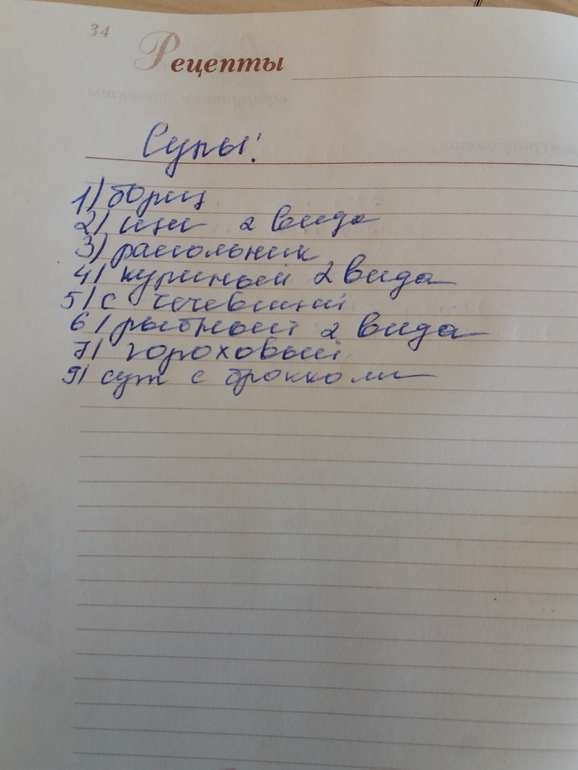 34
Рецепты
Супы!
1) борщ
2) щи 2 вида
3) рассольник
4) куриный 2 вида
5) с чечевицей
6) рыбный 2 вида
7) гороховый
9) суп с брокколи